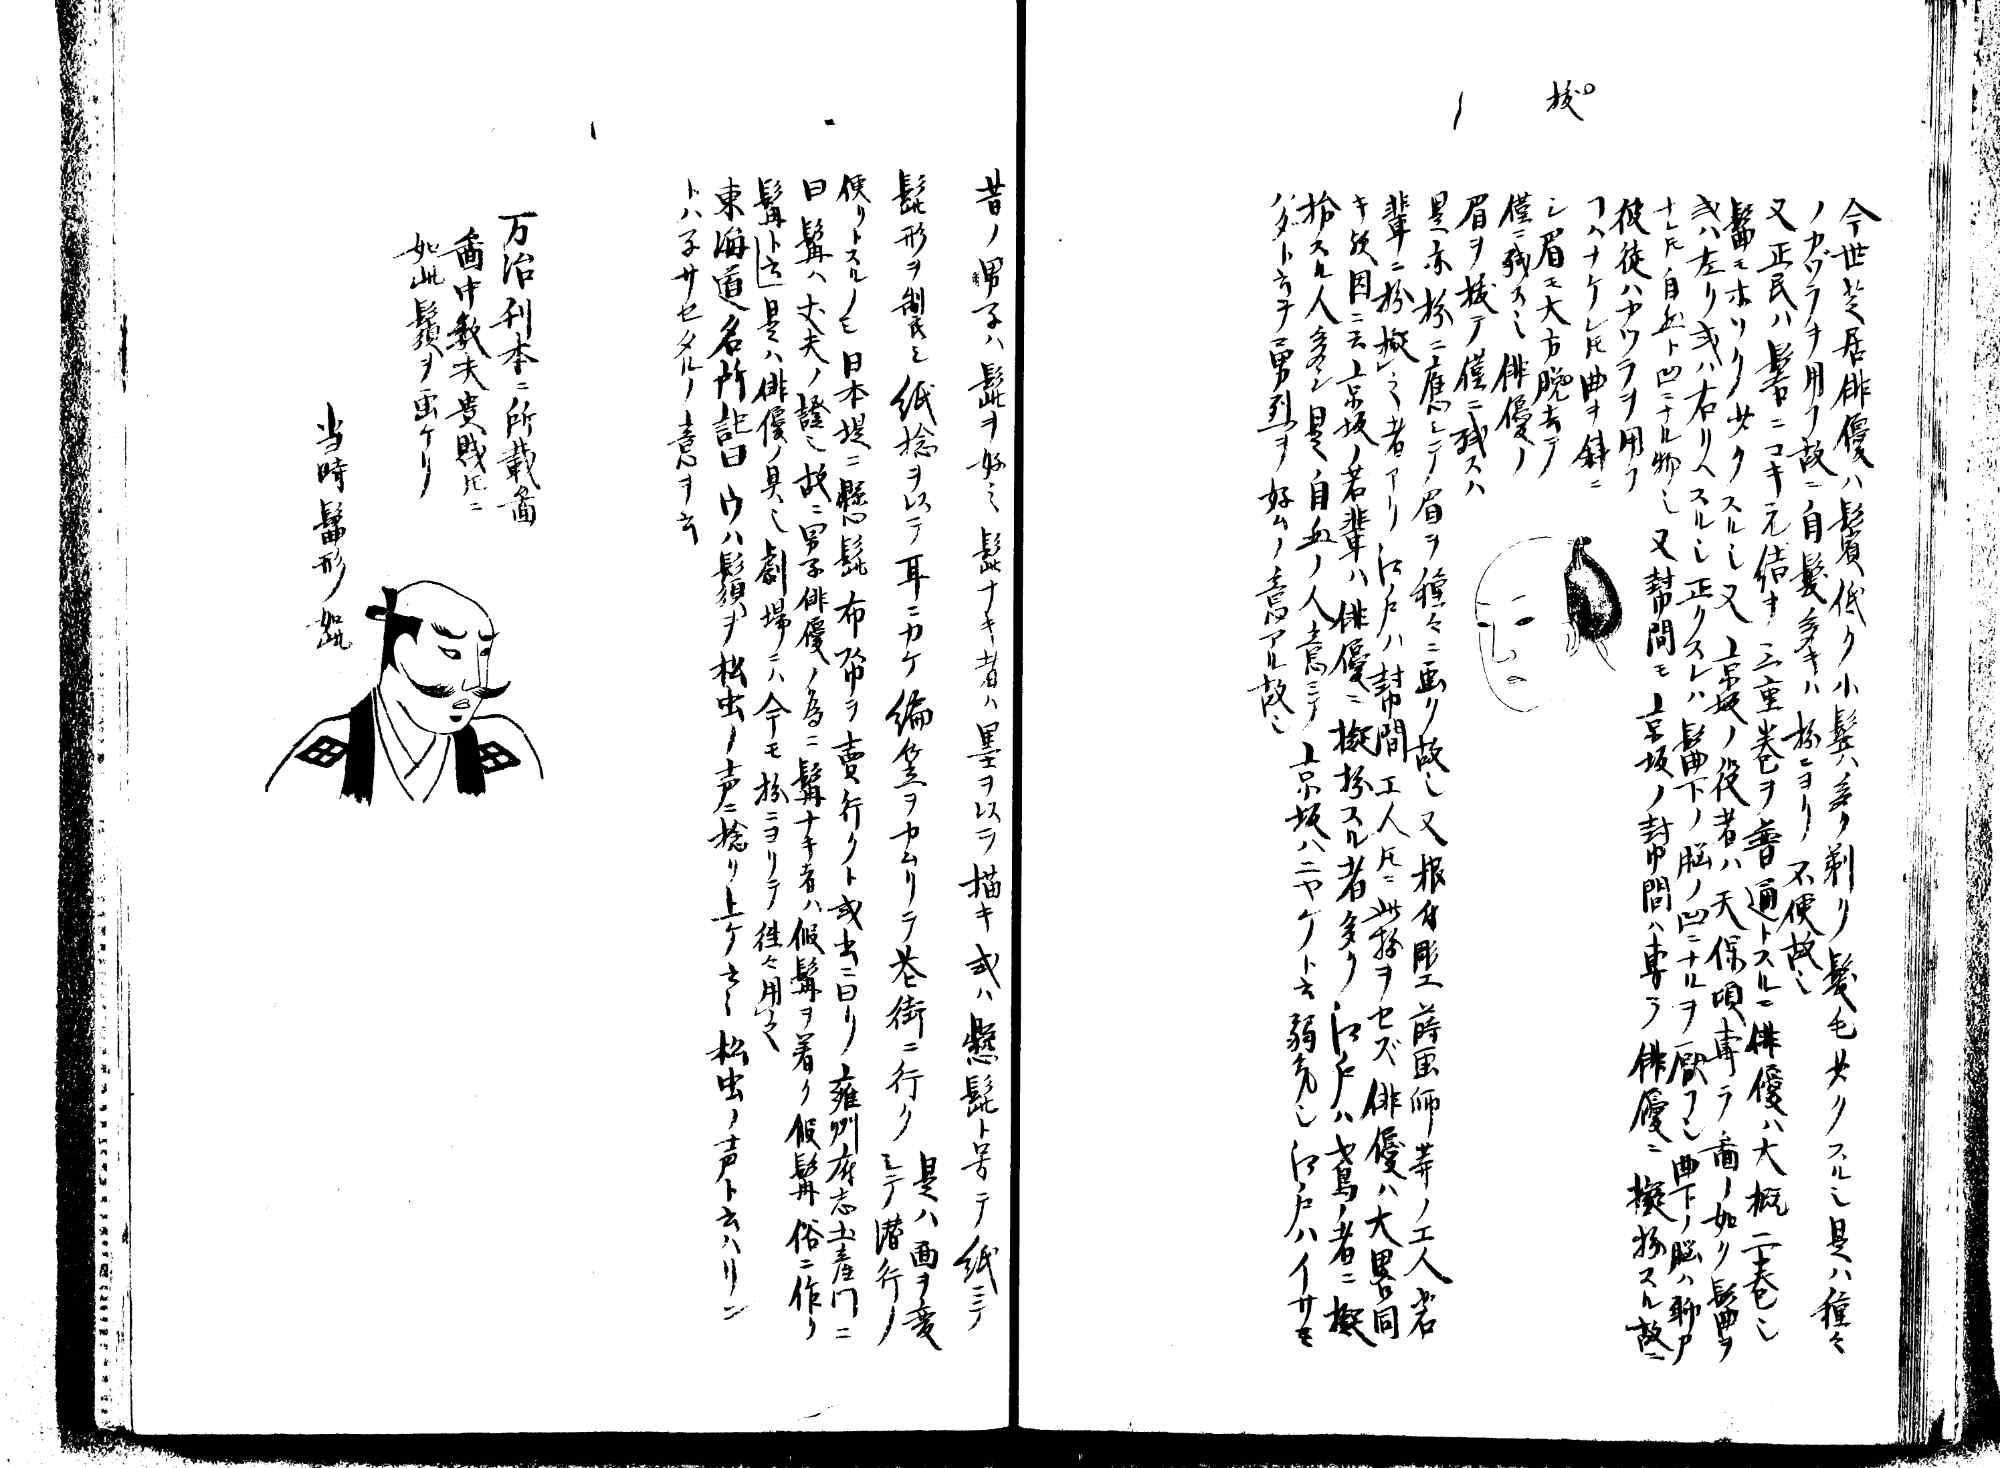 抜
今世芝居俳優ハ鬢低ク小鬢ハ多ク剃リ髪毛少クスル也是ハ種々
ノカヅラヲ用フ故ニ自髪多キハ扮ニヨリ不便故也
又正民ハ髻ニコキ元結ヲ三重巻ヲ普通トスルニ俳優ハ大概二巻也
髷モホソク少クスル也又京坂ノ役者ハ天保頃専ラ图ノ如ク髷ヲ
或ハ左リ或ハ右リヘスル也正クスレハ髷下ノ脳ノ凹ニナルヲ厭フ也曲下ノ脳ハ
ナレ𪜈自然ト凹ニナル物也
又幇間モ京坂ノ幇間ハ専ラ俳優ニ擬扮スル故ニ
彼徒ハカツラヲ用フ
コハナケレ𪜈曲ヲ斜ニ
シ眉モ大方脱去テ
僅ニ残ス也俳優ノ
眉ヲ抜テ僅ニ残スハ
是亦扮ニ應シテ眉ヲ種々ニ画ク故也又根付彫工蒔画師等ノ工人若
輩ニ扮擬シ者アリ江戸ハ幇間工人𪜈ニ此扮ヲセズ俳優ハ大畧同
キ歟因ニ云京坂ノ若輩ハ俳優ニ擬扮スル者多ク江戸ハ鳶ノ者ニ擬
扮スル人多シ是自然ノ人意ニテ京坂ハニヤケト云弱克也江戸ハイサミ
ハダト云テ勇烈ヲ好ムノ意アル故也
昔ノ男子ハ髭ヲ好ミ髭ナキ者ハ墨ヲ以テ描キ或ハ懸髭ト号テ紙ニテ
髭形ヲ製シ紙捻ヲ以テ耳ニカケ編笠ヲカムリテ巷街ニ行ク
是ハ面ヲ変
シテ潜行ノ
便リトスルノミ日本堤ニ懸髭布帋ヲ賣行クト或書ニ曰リ雍州府志土産門ニ
曰髯ハ丈夫ノ證也故ニ男子俳優ノ為ニ髯ナキ者ハ假髯ヲ着ク假髯俗ニ作リ
髯ト云
是ハ俳優ノ具也劇場ニハ今モ扮ニヨリテ往々用之
東海道名所記曰ウハ髭ヲ松虫ノ声ニ捻リ上ケ云々松虫ノ声ト云ハリン
トハ子サセタルノ意ヲ云
万治刊本ニ所載图
图中数夫貴賎𪜈ニ
如此鬚ヲ画ケリ
当時髷形ノ如此